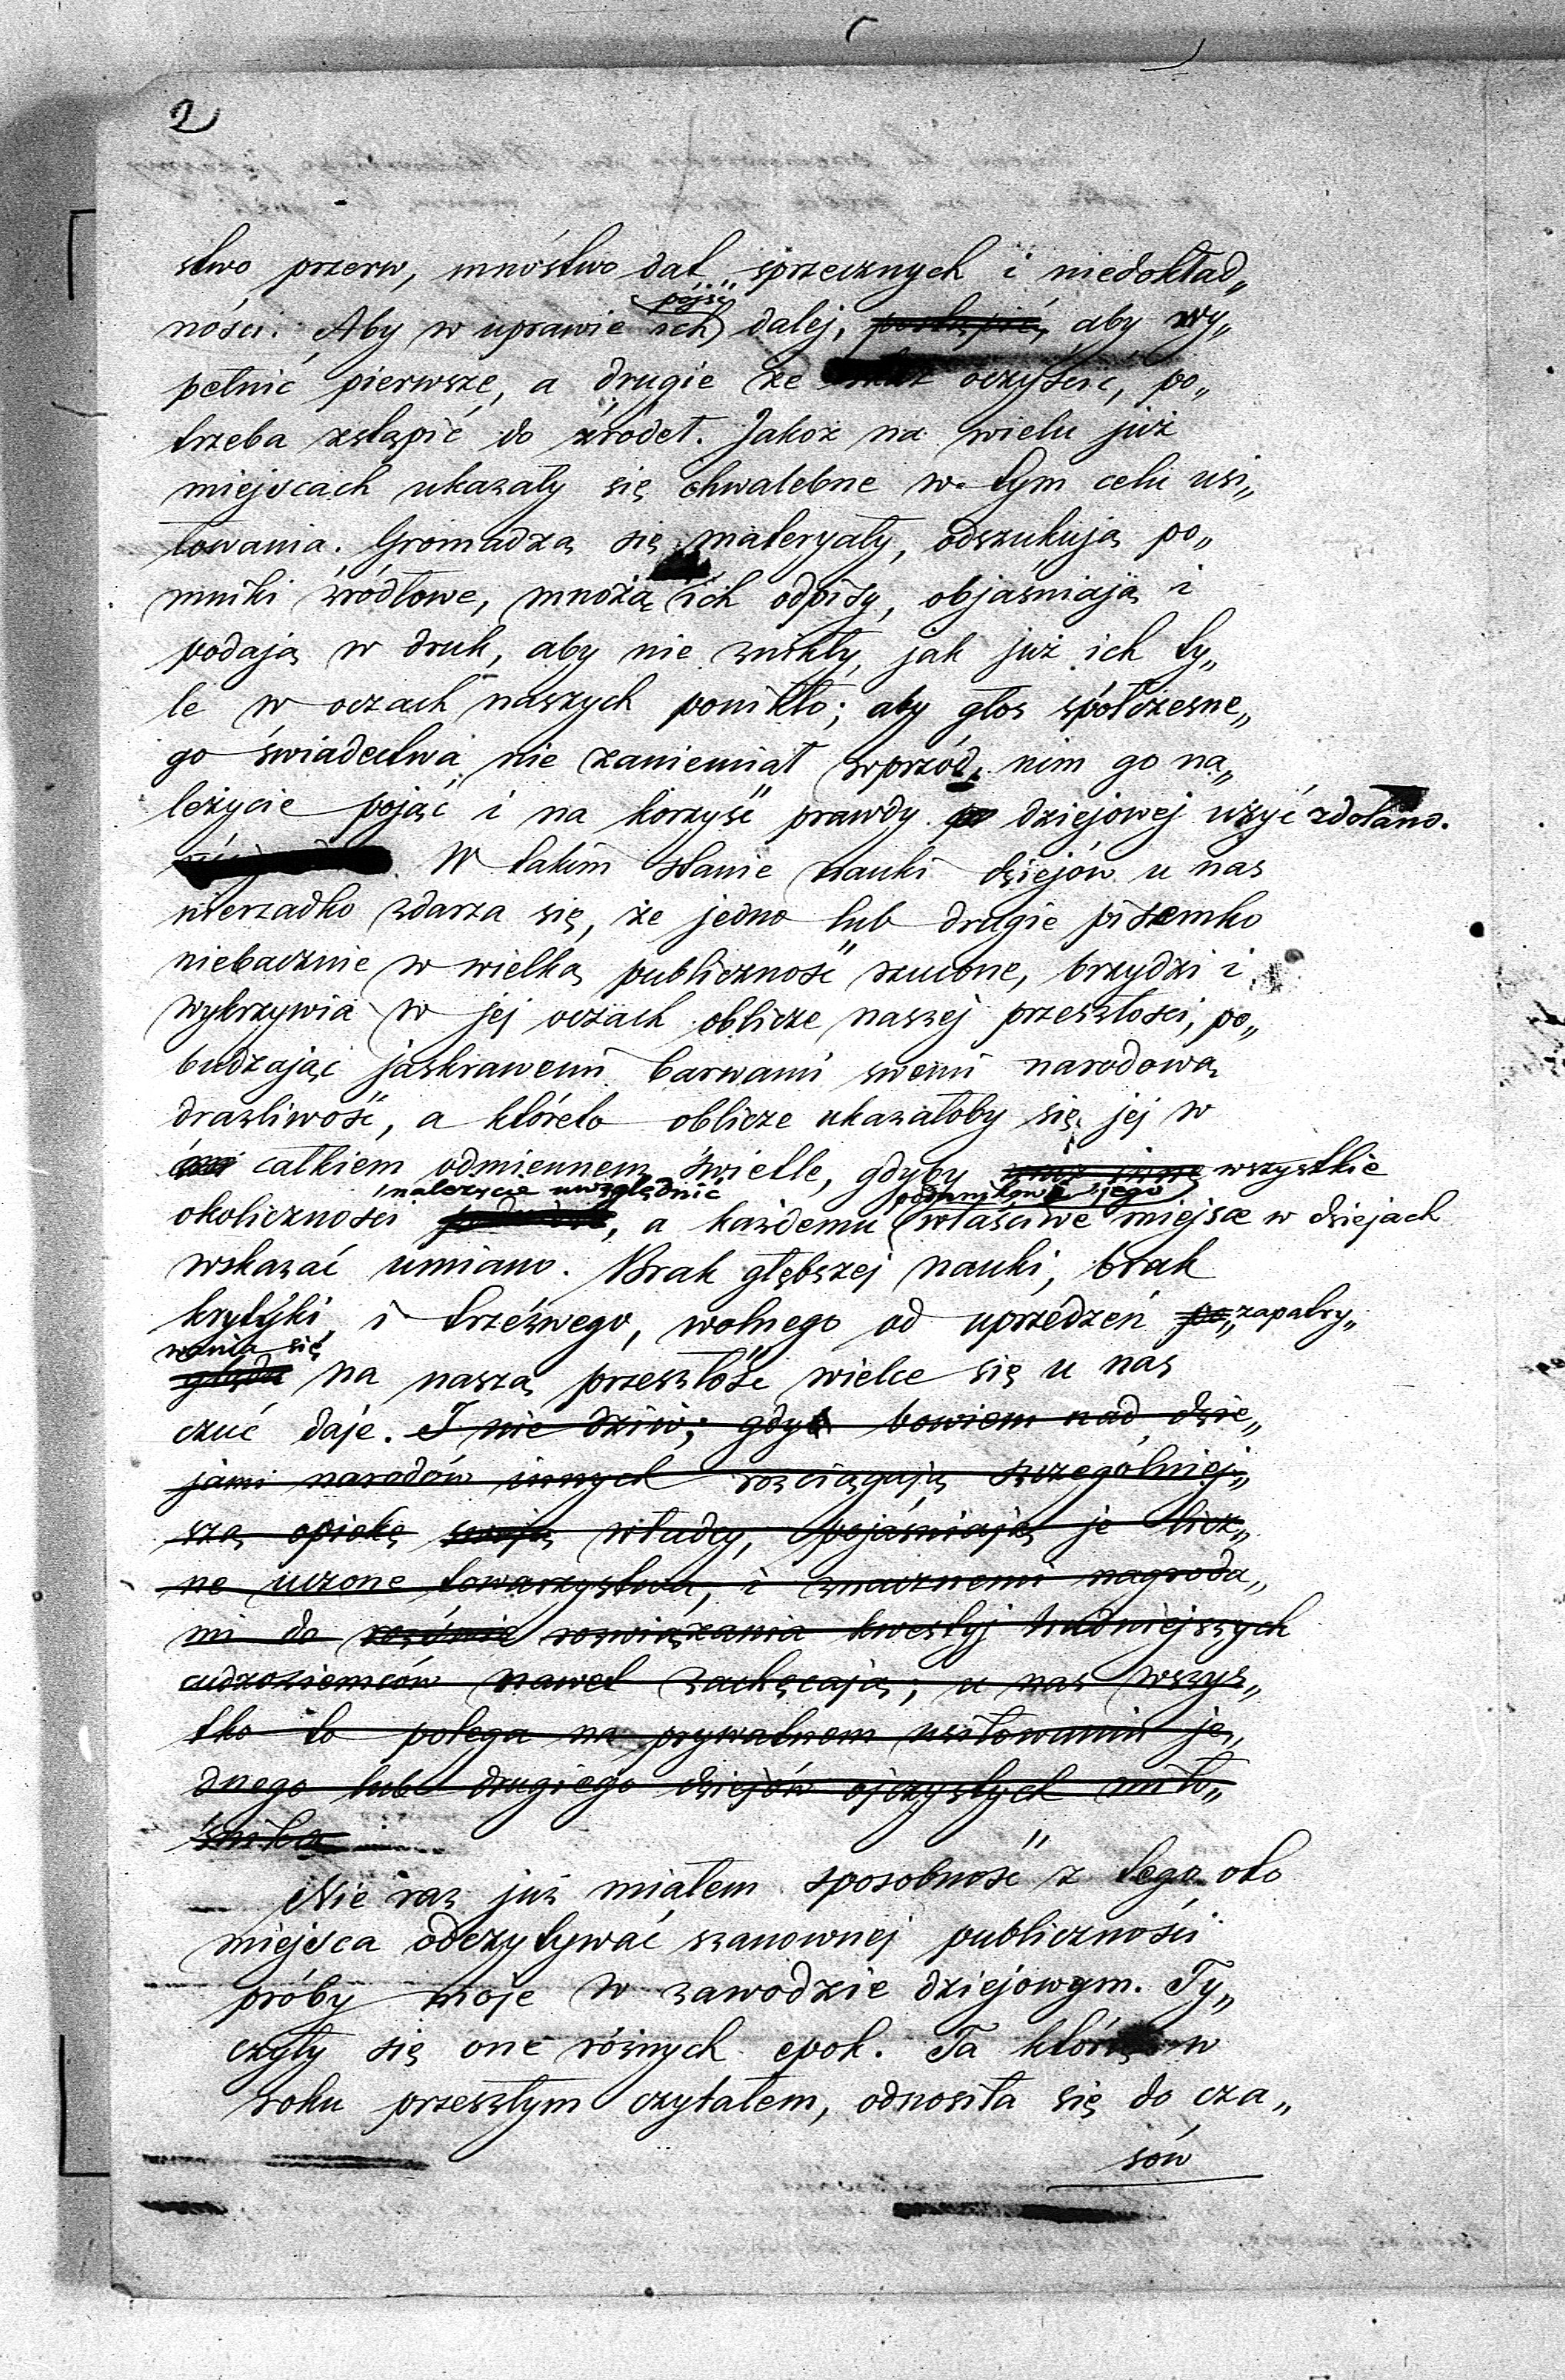 2
stwo przerw, mnóstwo dat sprzecznych i niedokład„
ności. Aby w uprawie ich pójść dalej, postąpić, aby wy„
pełnić pierwsze, a drugie ze skaz oczyścić, po„
trzeba zstąpić do źródeł. Jakoż na wielu już
miejscach ukazały się chwalebne w tym celu usi„
łowania. Gromadzą się materyały, odszukują po„
mniki źródłowe, mnożą ich odpisy, objaśniają i
podają w druk, aby nie znikły, jak już ich ty„
le w oczach naszych ponikło; aby głos spółczesne„
go świadectwa nie zaniemiał wprzód, nim go na„
leżycie pojąć i na korzyść prawdy dziejowej użyć zdołano.
W takim stanie nauki dziejów u nas
nierzadko zdarza się, że jedno lub drugie pisemko
niebacznie w wielką publiczność rzucone, brzydzi i
wykrzywia w jej oczach oblicze naszej przeszłości, po„
budzając jaskrawemi barwami swemi narodową
drażliwość, a któreto oblicze ukazałoby się jej w
całkiem odmiennem świetle, gdyby wszystkie
należycie uwzględnić
okoliczności, a każdemu właściwe miejsce w dziejach
wskazać umiano. Brak głębszej nauki, brak
krytyki i trzeźwego, wolnego od uprzedzeń po„ zapatry„
wania się
glądu na naszą przeszłość wielce się u nas
czuć daje. I nie dziw; gdy bowiem nad dzie„
jami narodów innych rozciągają szczególniej„
szą opiekę swoją władcy, pojaśniają je licz„
ne uczone towarzystwa, i znacznemi nagroda„
mi do rozwiązania kwestyj trudniejszych
cudzoziemców nawet zachęcają; u nas wszys„
tko to polega na prywatnem usiłowaniu je„
dnego lub drugiego dziejów ojczystych miło„
śnika
Nie raz już miałem sposobność z tego oto
miejsca odczytywać szanownej publiczności
próby moje w zawodzie dziejowym. Ty„
czyły się one różnych epok. Ta którą w
roku przeszłym czytałem, odnosiła się do cza„
sów